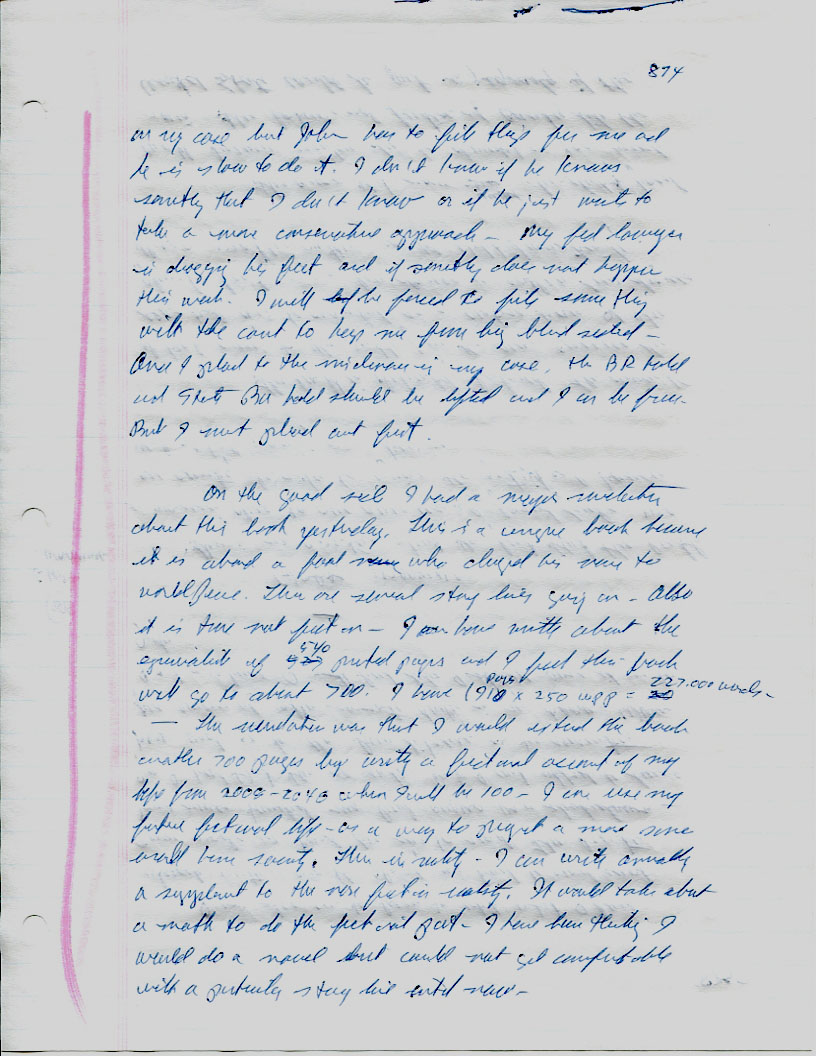 874
on my case but John has to file things for me and
he is slow to do it. I don't know if he knows
something that I don't know or if he just wants to
take a more conservative approach – My fed lawyer
is dragging his feet and if something does not happen
this week. I will be forced to file something
with the court to keep me from being blind sided –
Once I plead to the misdemeanor in my case, the BR hold
and State Bar hold should be lifted and I can be free.
But I must plead out first.
On the good side I had a major revelation
about this book yesterday. This is a unique book because
it is about a who changed his name to
world peace. There are several story lines going on – Also
it is true not fiction – I have written about the
equivalent of 540 printed pages and I feel this book
will go to about 700. I have (910 pages x 250 wpp = 227.000 words –
— The revelation was that I would extend the book
another 700 pages by writing a fictional account of my
life from 2000–2046 when I will be 100 – I can use my
future fictional life – as a way to project a more sane
world society. This is reality – I can write annually
a supplement to the reality. It would take about
a month to do the fictional part – I have been thinking I
would do a novel but could not get comfortable
with a particular story line until now –